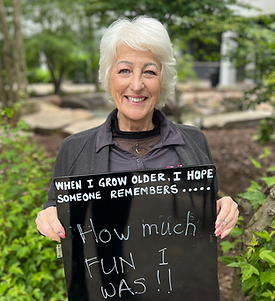 WHEN I GROW OLDER, I HOPE
SOMEONE REMEMBERS .....
How much
FUN I
WAS!!